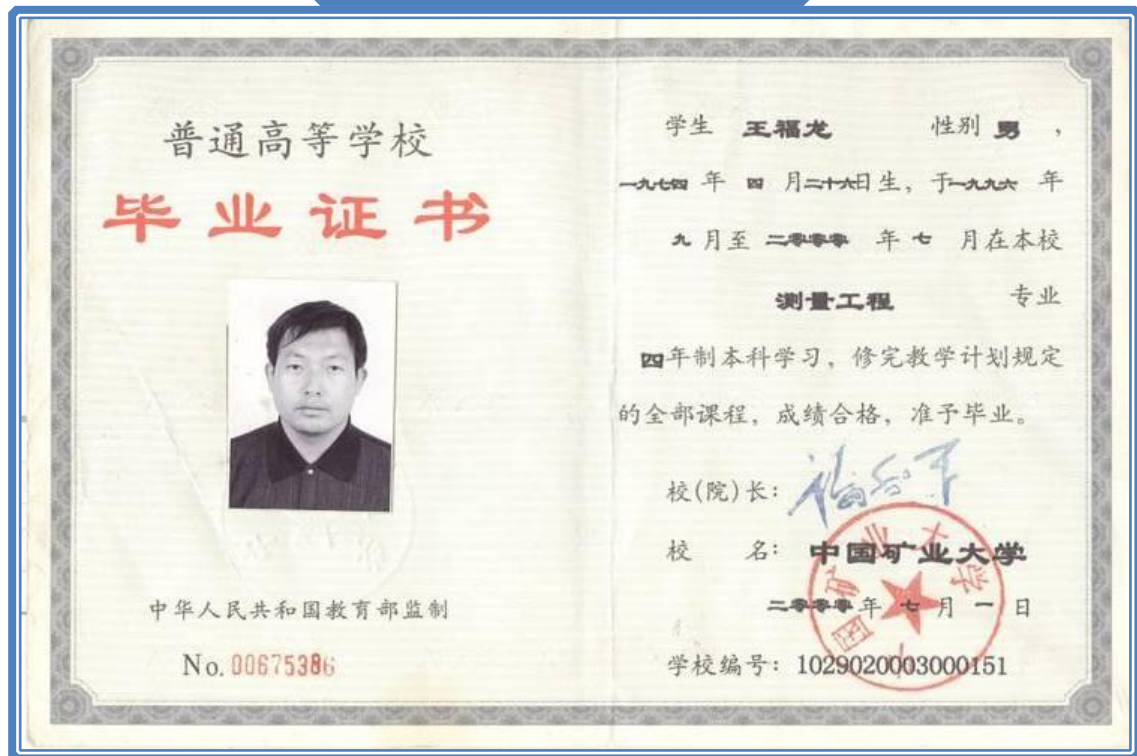 普通高等学校
毕业证书
中华人民共和国教育部监制
No. 00675386
学生 王福龙 性别 男 ，
一九七四 年 四 月二十六日生，于一九九六 年
九 月至 二零零零 年 七 月在本校
测量工程 专业
四年制本科学习，修完教学计划规定
的全部课程，成绩合格，准予毕业。
校(院)长：
校 名：中国矿业大学
二零零零 年 七 月 一 日
学校编号：1029020003000151
中国矿业大学